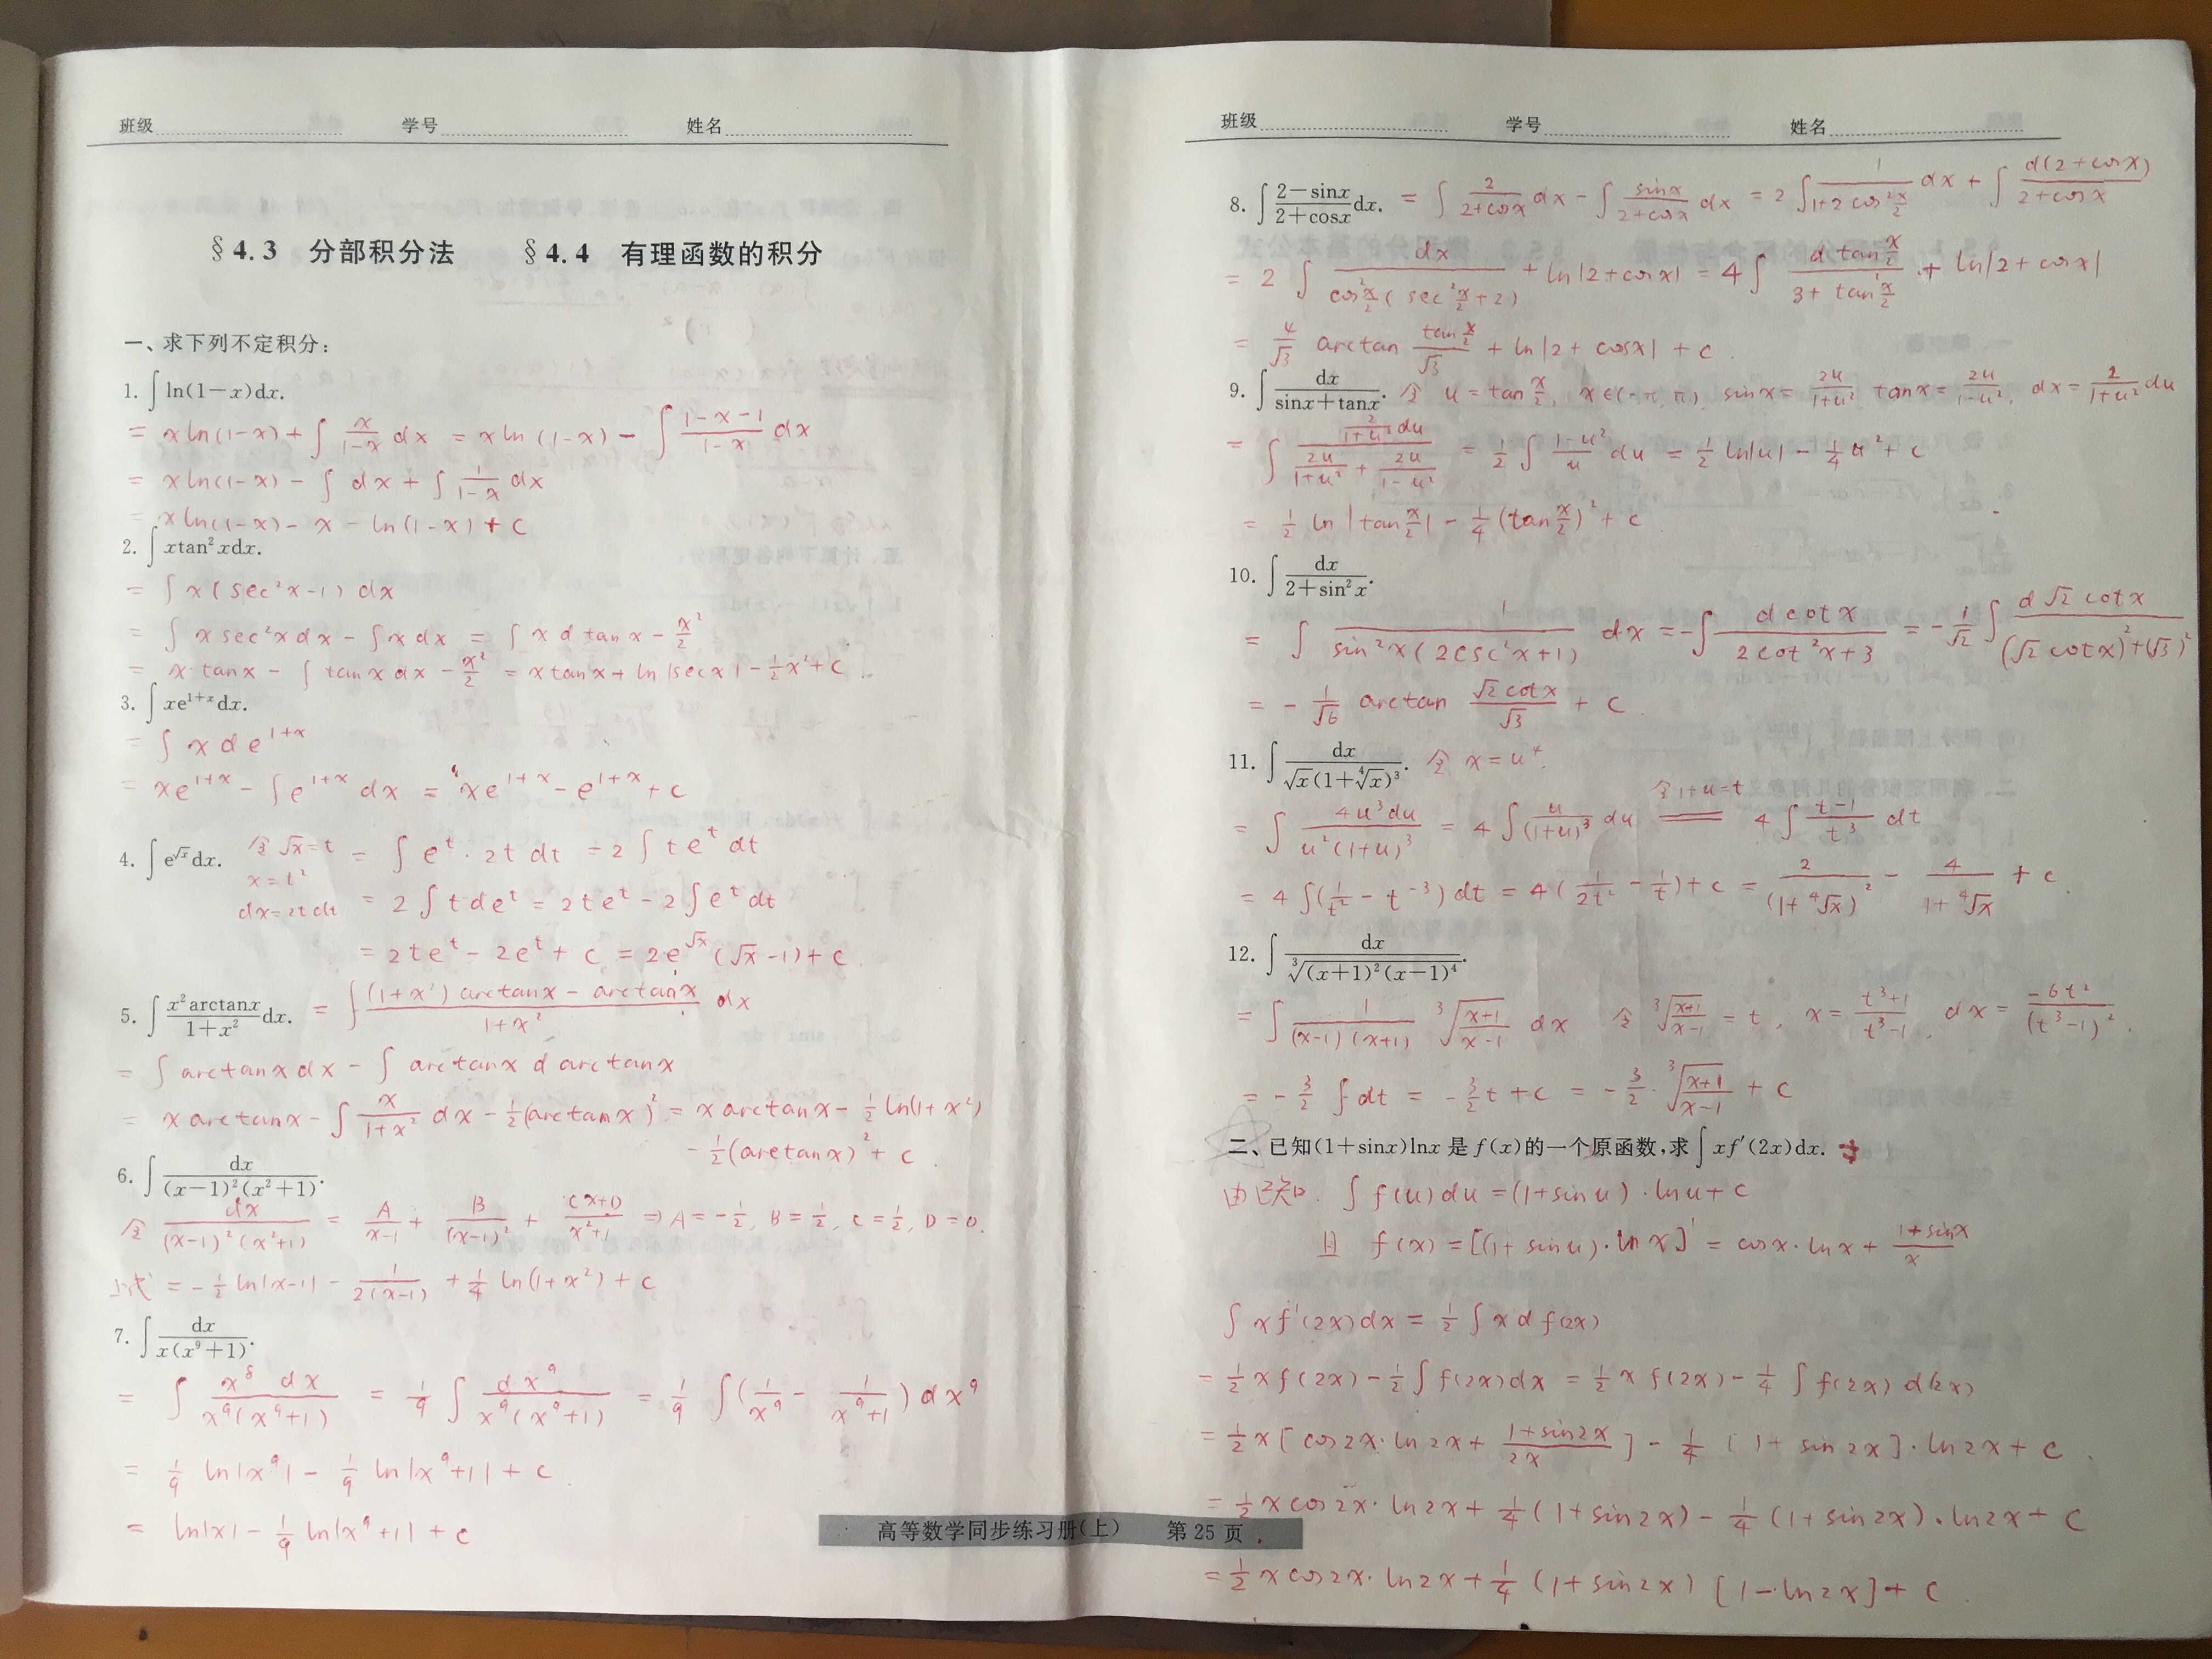 班级 学号 姓名
§4.3 分部积分法 §4.4 有理函数的积分
一、求下列不定积分:
1. ∫ln(1-x)dx.
= xln(1-x) + ∫ x/(1-x) dx = xln(1-x) - ∫ (1-x-1)/(1-x) dx
= xln(1-x) - ∫dx + ∫ 1/(1-x) dx
= xln(1-x) - x - ln(1-x) + c
2. ∫xtan²xdx.
= ∫x(sec²x-1)dx
= ∫xsec²xdx - ∫xdx = ∫xd tanx - x²/2
= x·tanx - ∫tanxdx - x²/2 = xtanx + ln|secx| - ½x² + c.
3. ∫xe^(1+x)dx.
= ∫xde^(1+x)
= xe^(1+x) - ∫e^(1+x)dx = xe^(1+x) - e^(1+x) + c
4. ∫e^(√x)dx. 令√x=t = ∫e^t·2tdt = 2∫te^t dt
x=t²
dx=2tdt = 2∫tde^t = 2te^t - 2∫e^t dt
= 2te^t - 2e^t + c = 2e^(√x)(√x-1) + c
5. ∫ x²arctanx/(1+x²) dx. = ∫ ((1+x²)arctanx - arctanx)/(1+x²) dx
= ∫arctanxdx - ∫arctanx d arctanx
= xarctanx - ∫ x/(1+x²) dx - ½(arctanx)² = xarctanx - ½ln(1+x²)
- ½(arctanx)² + c.
6. ∫ dx/((x-1)²(x²+1)).
令 dx/((x-1)²(x²+1)) = A/(x-1) + B/(x-1)² + (Cx+D)/(x²+1) ⇒ A=-½, B=½, C=½, D=0.
上式 = -½ln|x-1| - 1/(2(x-1)) + ¼ln(1+x²) + c
7. ∫ dx/(x(x⁹+1)).
= ∫ x⁸dx/(x⁹(x⁹+1)) = 1/9 ∫ dx⁹/(x⁹(x⁹+1)) = 1/9 ∫(1/x⁹ - 1/(x⁹+1))dx⁹
= 1/9 ln|x⁹| - 1/9 ln|x⁹+1| + c.
= ln|x| - 1/9 ln|x⁹+1| + c
班级 学号 姓名
8. ∫ (2-sinx)/(2+cosx) dx. = ∫ 2/(2+cosx) dx - ∫ sinx/(2+cosx) dx = 2∫ 1/(1+2cos²(x/2)) dx + ∫ d(2+cosx)/(2+cosx)
= 2∫ dx/(cos²(x/2)(sec²(x/2)+2)) + ln|2+cosx| = 4∫ d tan(x/2)/(3+tan²(x/2)) + ln|2+cosx|
= 4/√3 arctan (tan(x/2)/√3) + ln|2+cosx| + c.
9. ∫ dx/(sinx+tanx). 令 u=tan(x/2), x∈(-π,π), sinx=2u/(1+u²) tanx=2u/(1-u²), dx=2/(1+u²) du
= ∫ (2/(1+u²) du)/(2u/(1+u²) + 2u/(1-u²)) = ½∫ (1-u²)/u du = ½ln|u| - ¼u² + c
= ½ln|tan(x/2)| - ¼(tan(x/2))² + c.
10. ∫ dx/(2+sin²x).
= ∫ 1/(sin²x(2csc²x+1)) dx = -∫ d cotx/(2cot²x+3) = -1/√2 ∫ d√2cotx/((√2cotx)²+(√3)²)
= -1/√6 arctan (√2cotx/√3) + c.
11. ∫ dx/(√x(1+∜x)³). 令 x=u⁴.
= ∫ 4u³du/(u²(1+u)³) = 4∫ u/(1+u)³ du 令1+u=t == 4∫ (t-1)/t³ dt
= 4∫(1/t² - t⁻³)dt = 4(1/(2t²) - 1/t) + c = 2/(1+∜x)² - 4/(1+∜x) + c.
12. ∫ dx/∛((x+1)²(x-1)⁴).
= ∫ 1/((x-1)(x+1)) ∛((x+1)/(x-1)) dx 令 ∛((x+1)/(x-1)) = t, x=(t³+1)/(t³-1), dx=-6t²/(t³-1)².
= -3/2 ∫dt = -3/2 t + c = -3/2·∛((x+1)/(x-1)) + c
二、已知(1+sinx)lnx是f(x)的一个原函数,求∫xf′(2x)dx.
由已知. ∫f(u)du = (1+sinu)·lnu + c
且 f(x) = [(1+sinu)·lnx]′ = cosx·lnx + (1+sinx)/x
∫xf′(2x)dx = ½∫xdf(2x)
= ½xf(2x) - ½∫f(2x)dx = ½xf(2x) - ¼∫f(2x)d(2x)
= ½x[cos2x·ln2x + (1+sin2x)/2x] - ¼[1+sin2x]·ln2x + c.
= ½xcos2x·ln2x + ¼(1+sin2x) - ¼(1+sin2x)·ln2x + c
= ½xcos2x·ln2x + ¼(1+sin2x)[1-ln2x] + c.
高等数学同步练习册(上) 第25页